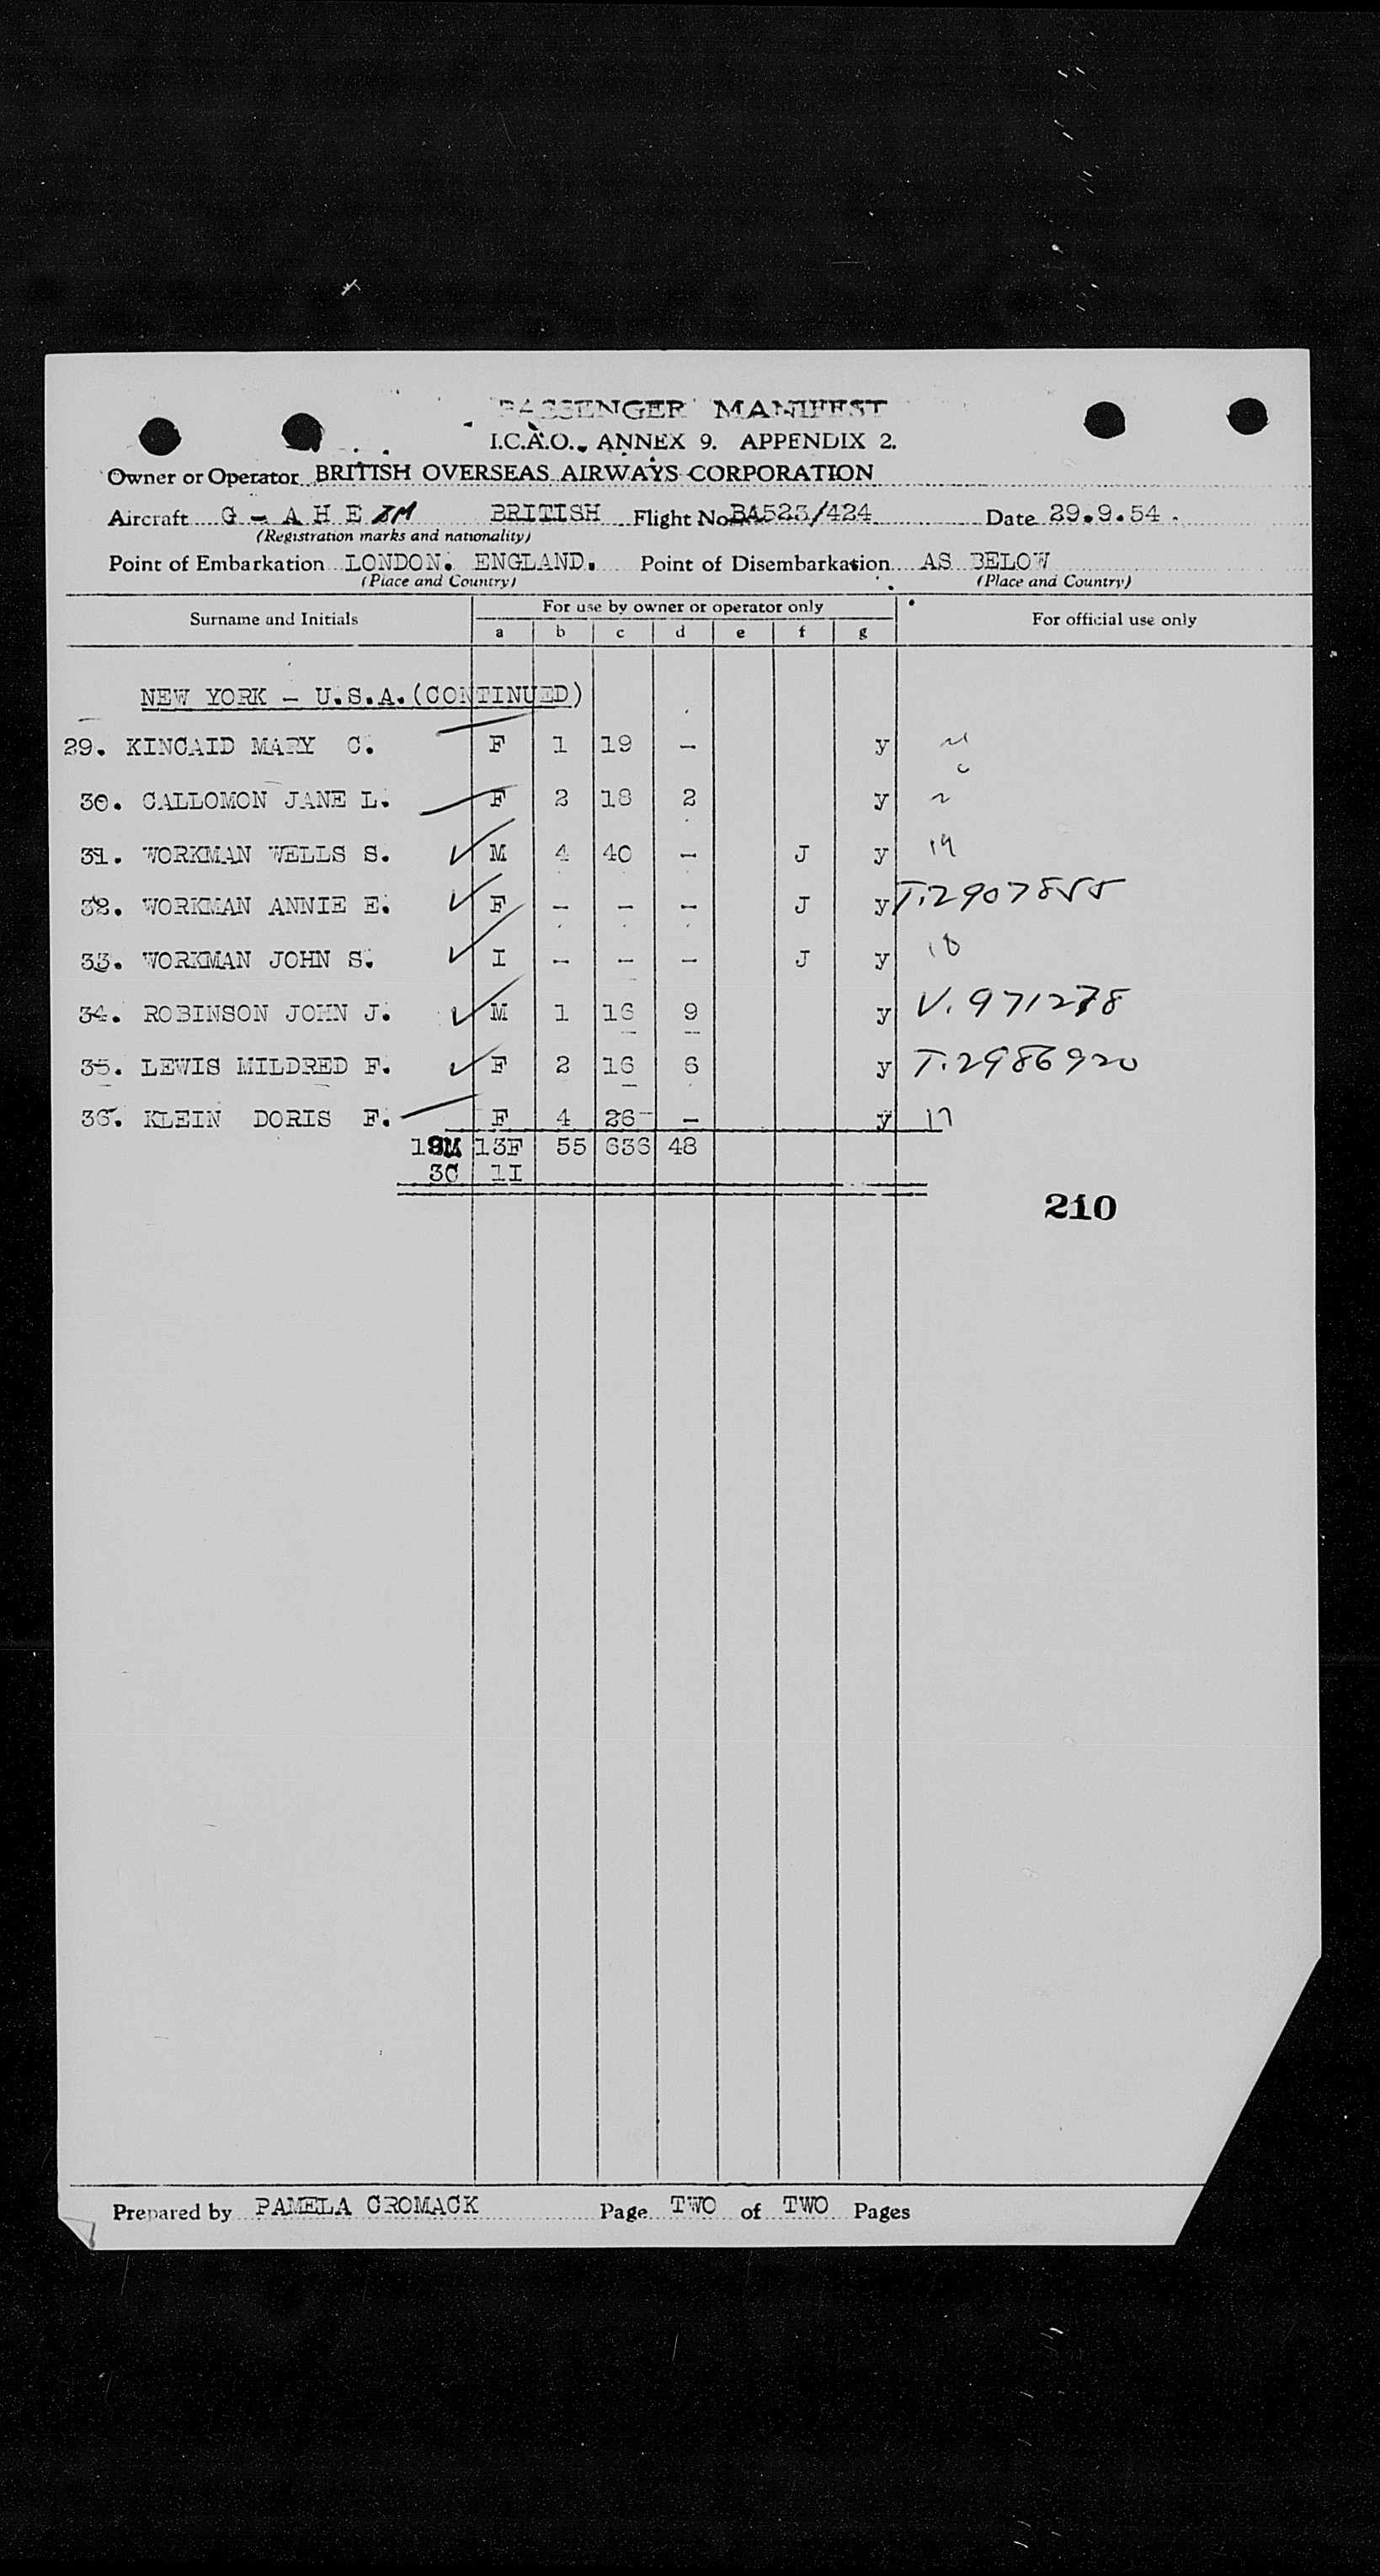 PASSENGER MANIFEST
I.C.A.O. ANNEX 9. APPENDIX 2.
Owner or Operator BRITISH OVERSEAS AIRWAYS CORPORATION
Aircraft G - A H E BRITISH Flight No. BA523/424 Date 29.9.54.
(Registration marks and nationality)
Point of Embarkation LONDON. ENGLAND. Point of Disembarkation AS BELOW
(Place and Country) (Place and Country)
Surname and Initials For use by owner or operator only For official use only
a b c d e f g
NEW YORK - U.S.A.(CONTINUED)
29. KINCAID MARY C. F 1 19 - y
30. CALLOMON JANE L. F 2 18 2 y
31. WORKMAN WELLS S. M 4 40 - J y 19
32. WORKMAN ANNIE E. F - - - J y T.2907855
33. WORKMAN JOHN S. I - - - J y 18
34. ROBINSON JOHN J. M 1 16 9 y V. 971278
35. LEWIS MILDRED F. F 2 16 6 y T.2986920
36. KLEIN DORIS F. F 4 26 - y 17
19M 13F 55 636 48
3C 1I
210
Prepared by PAMELA CROMACK Page TWO of TWO Pages